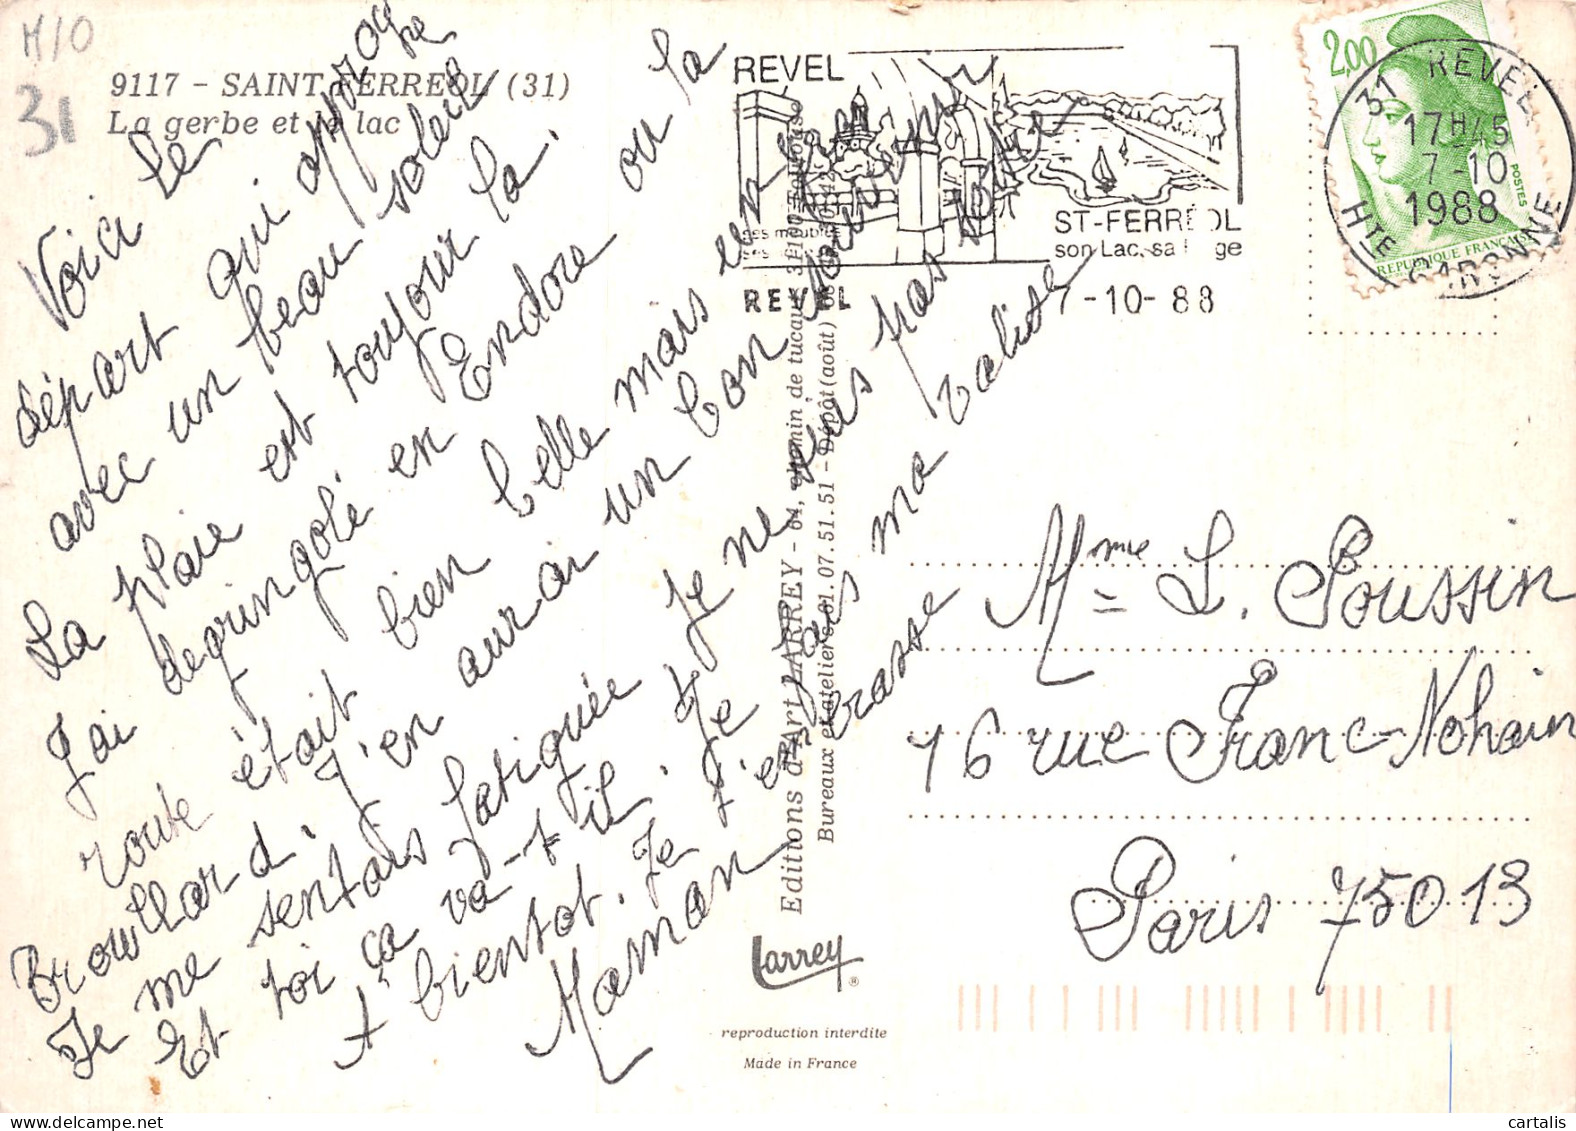 M/O
31
9117 - SAINT FERREOL (31)
La gerbe et le lac
Voici le
départ qui approche
avec un beau soleil
La plaie est toujour la.
J'ai degringolé en Endore ou la
route était bien belle mais en
Brouillard. J'en aurai un bon souvenir
Je me sentais fatiguée Je ne suis pas
Et toi ça va-t-il. Je fais ma valise
A bientot. Je t'embrasse
Maman
Editions d'Art LARREY - 64, chemin de tucaut 31100 Toulouse
Bureaux et ateliers 61.07.51.51 - Dépôt (août)
larrey
®
reproduction interdite
Made in France
REVEL
ses meubles
ST-FERRÉOL
son Lac, sa
REVEL
7-10-88
2,00
POSTES
REPUBLIQUE FRANÇAISE
31 REVEL
17H45
7-10
1988
HTE GARONNE
Mme L. Poussin
16 rue Franc-Nohain
Paris 75013
cartalis